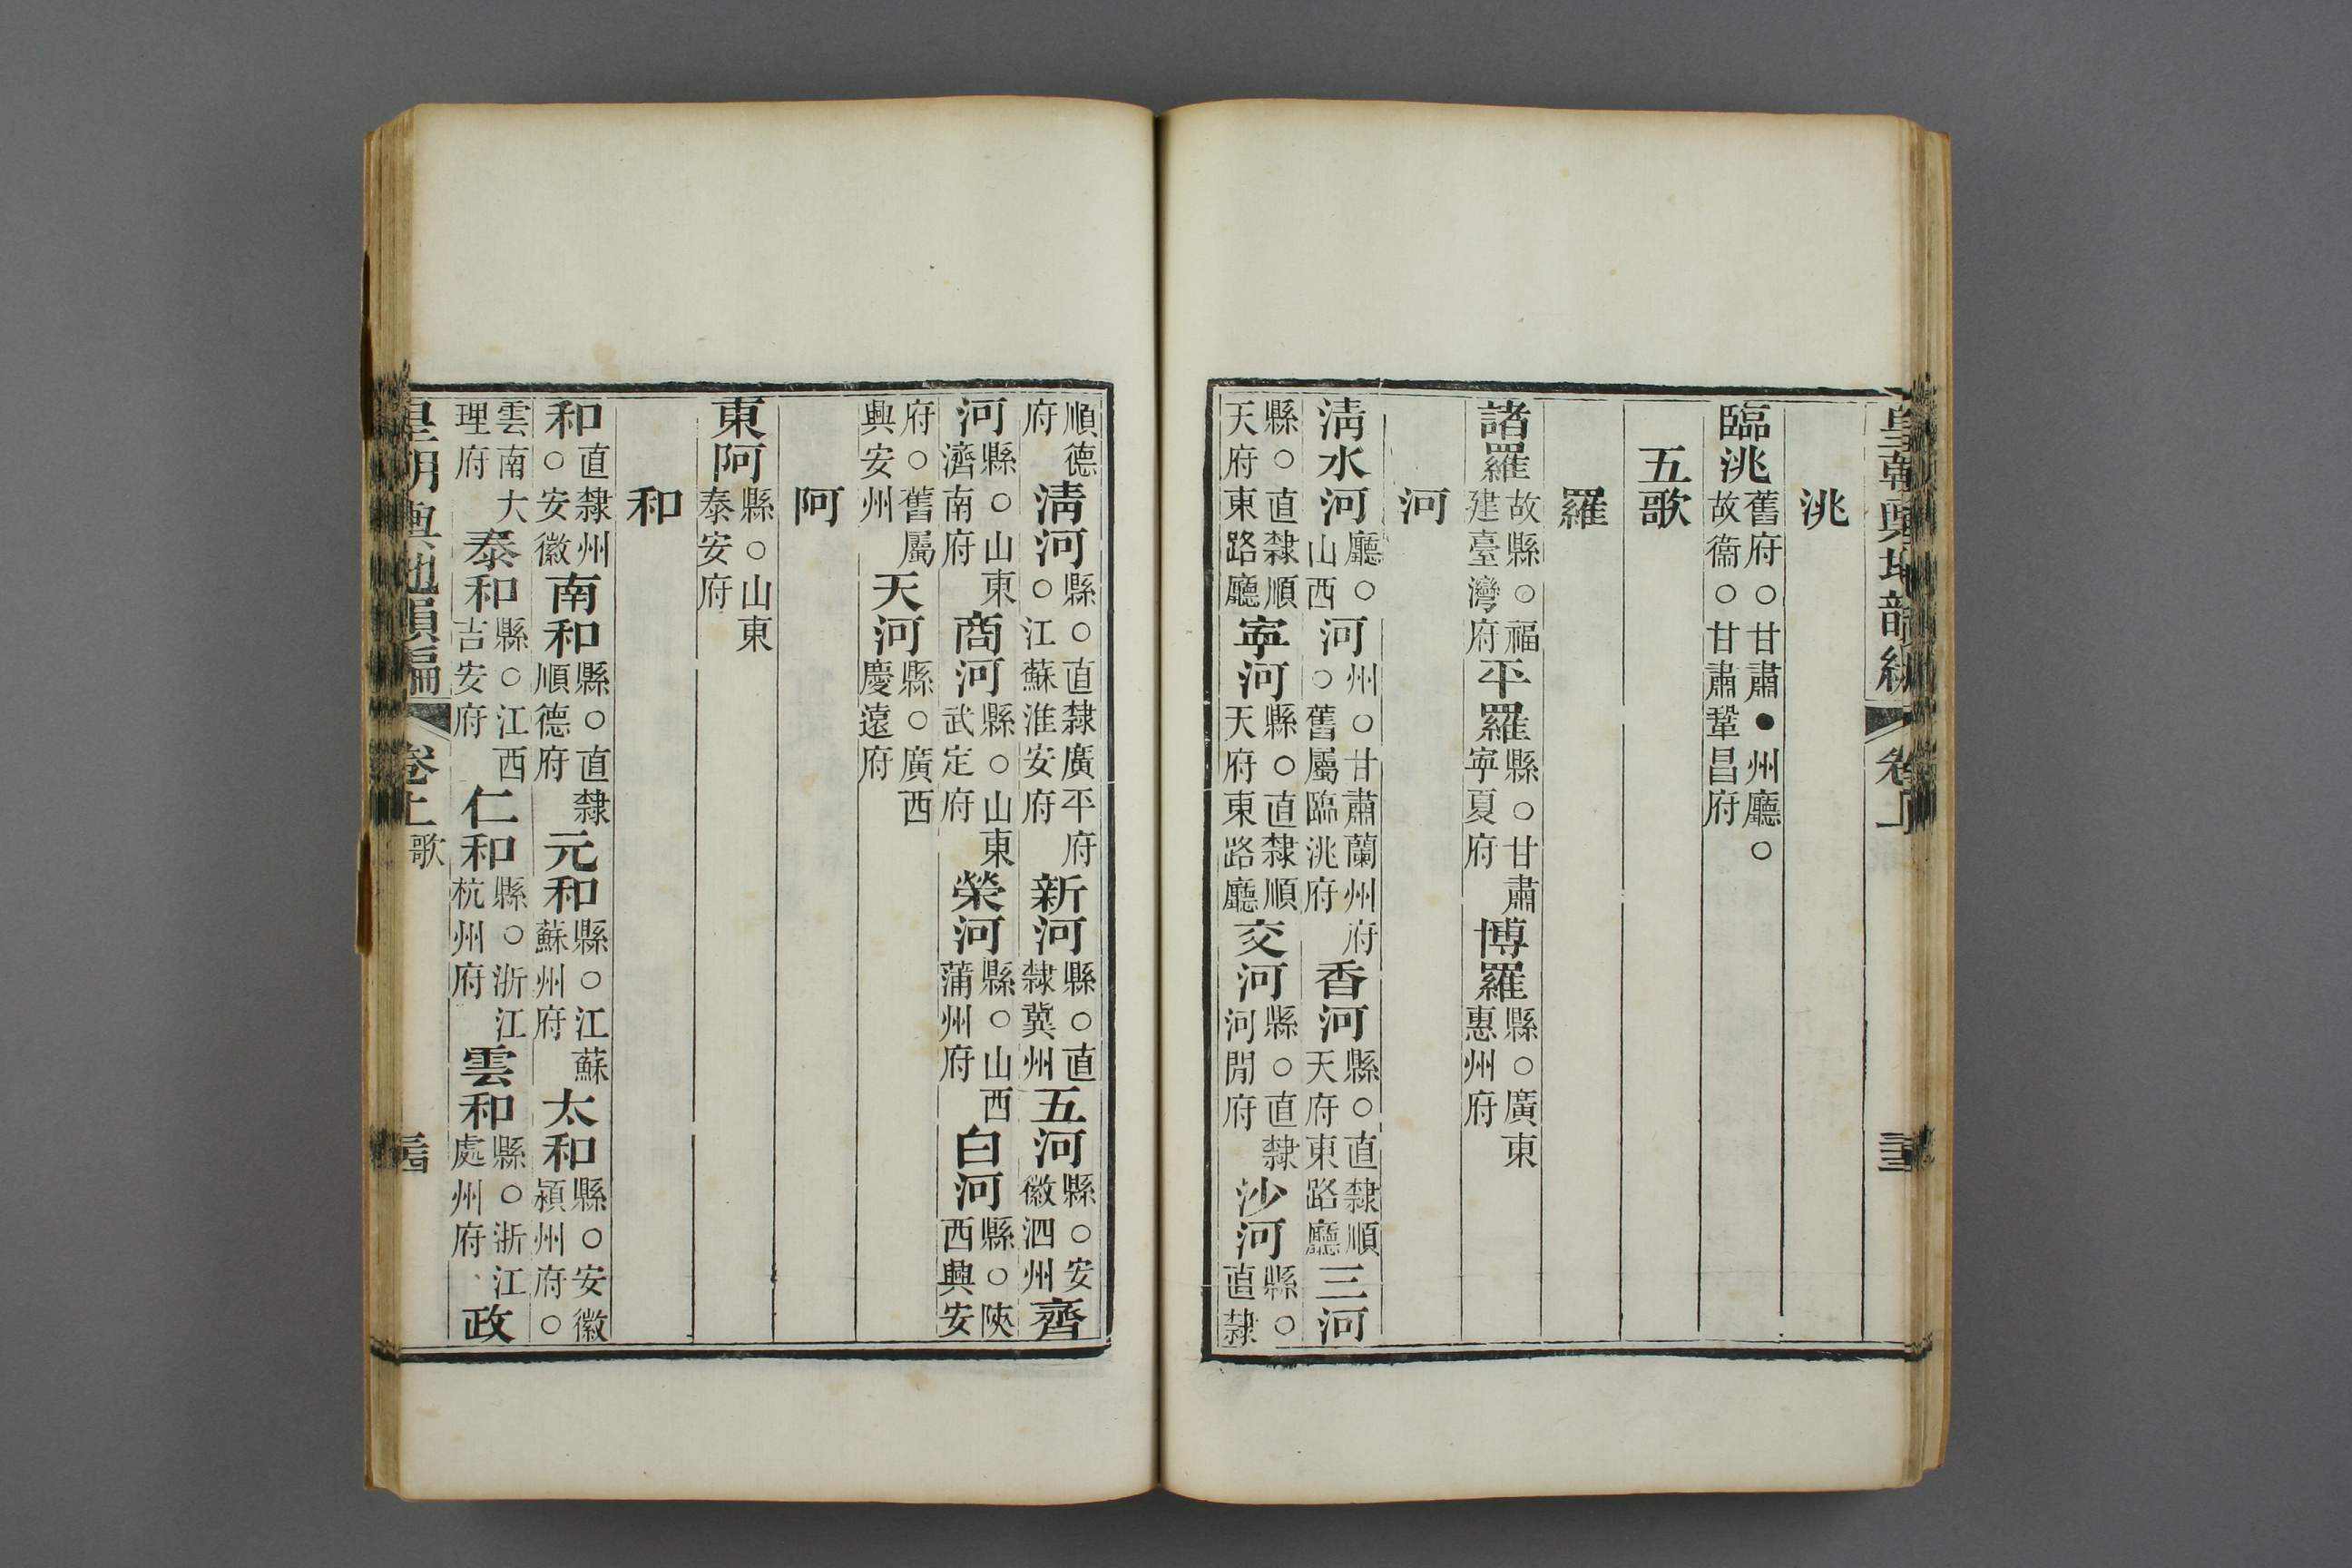 皇朝輿地韻編 卷上
洮
臨洮舊府○甘肅●州廳○故衞○甘肅鞏昌府
五歌
羅
諸羅故縣○福建臺灣府平羅縣○甘肅寧夏府博羅縣○廣東惠州府
河
淸水河廳○山西河州○甘肅蘭州府○舊屬臨洮府香河縣○直隸順天府東路廳三河
縣○直隸順天府東路廳寧河縣○直隸順天府東路廳交河縣○直隸河閒府沙河縣○直隸
順德府淸河縣○直隸廣平府○江蘇淮安府新河縣○直隸冀州五河縣○安徽泗州齊
河縣○山東濟南府商河縣○山東武定府榮河縣○山西蒲州府白河縣○陝西興安
府○舊屬興安州天河縣○廣西慶遠府
阿
東阿縣○山東泰安府
和
和直隸州○安徽南和縣○直隸順德府元和縣○江蘇蘇州府太和縣○安徽潁州府○
雲南大理府泰和縣○江西吉安府仁和縣○浙江杭州府雲和縣○浙江處州府政
皇朝輿地韻編 卷上 歌